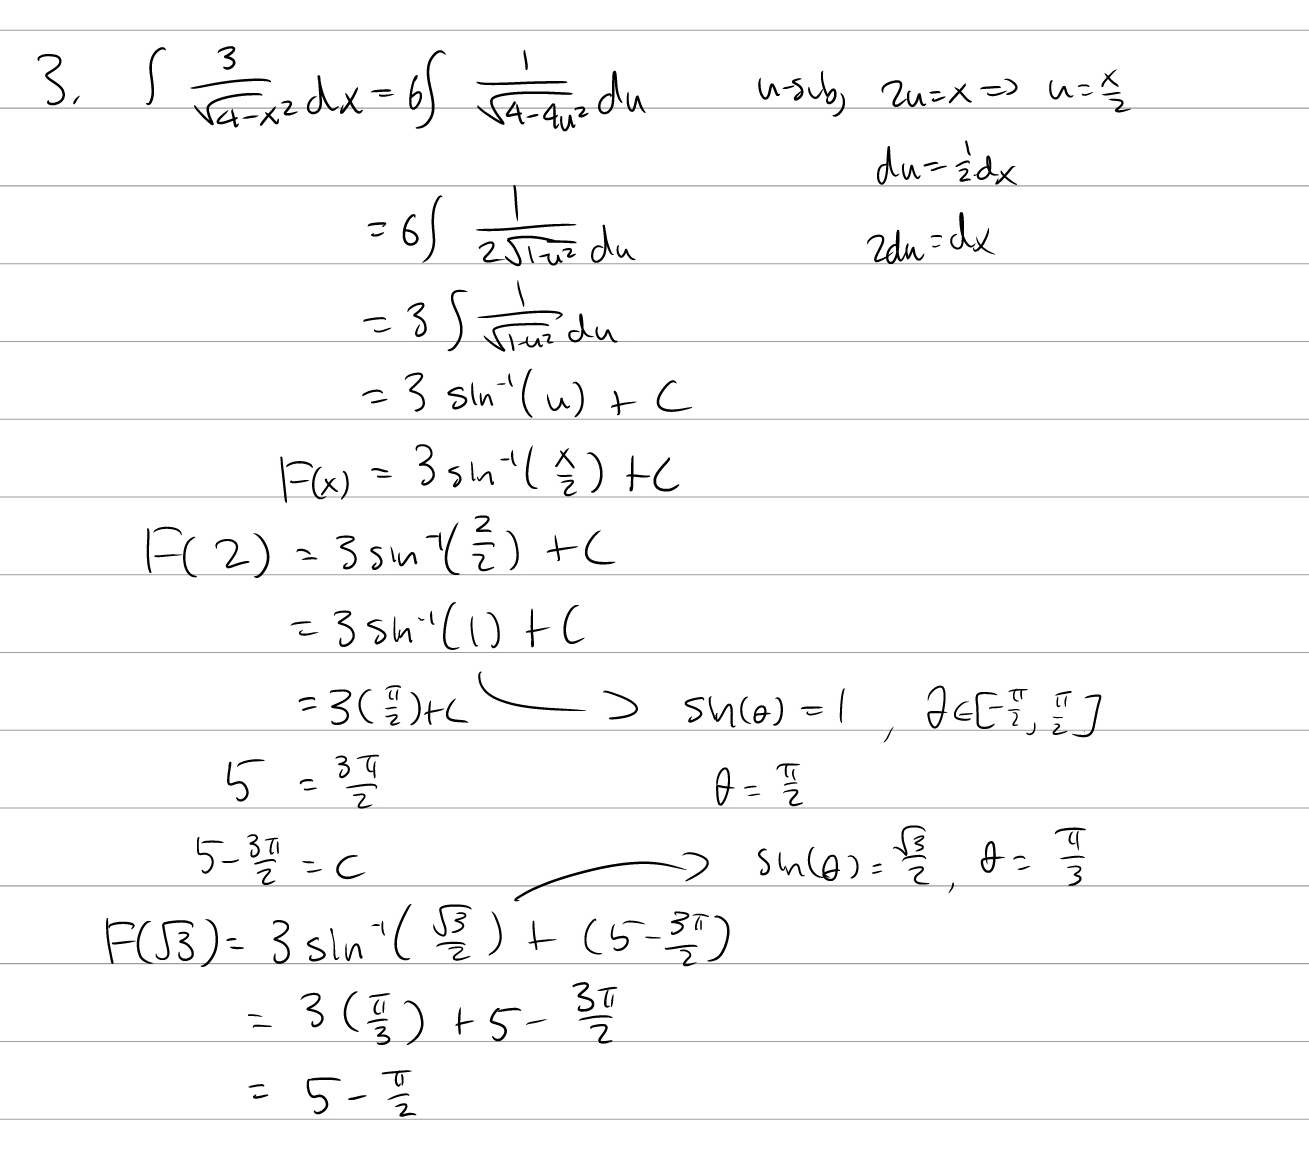 3. ∫ 3/√(4-x²) dx = 6∫ 1/√(4-4u²) du   u-sub, 2u=x => u=x/2
du=1/2 dx
= 6∫ 1/(2√(1-u²)) du   2du=dx
= 3∫ 1/√(1-u²) du
= 3 sin⁻¹(u) + C
F(x) = 3 sin⁻¹(x/2) + C
F(2) = 3 sin⁻¹(2/2) + C
= 3 sin⁻¹(1) + C
= 3(π/2)+C → sin(θ) = 1, θ∈[-π/2, π/2]
5 = 3π/2   θ = π/2
5-3π/2 = C → sin(θ) = √3/2, θ = π/3
F(√3) = 3 sin⁻¹(√3/2) + (5-3π/2)
= 3(π/3) + 5 - 3π/2
= 5 - π/2